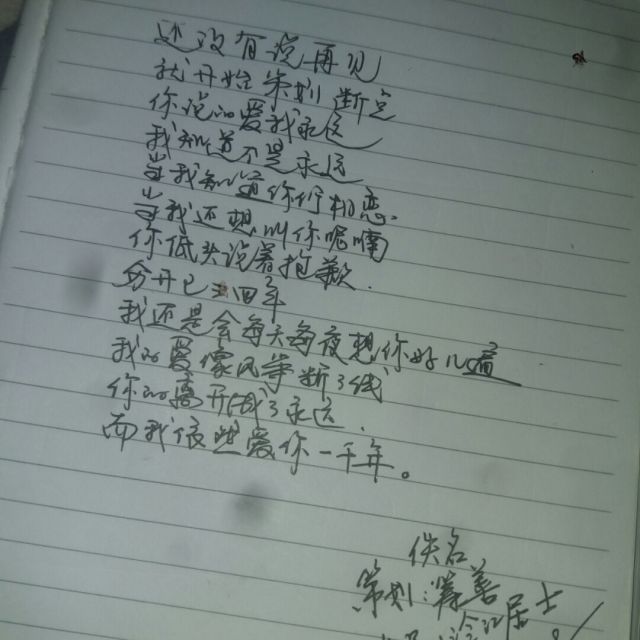 还没有说再见
我开始失别断定
你说的爱我永远
我知道不是永远
当我知道你们相恋.
当我还想叫你呢喃
你低头说着抱歉.
分开已四年
我还是会每天每夜想你好几遍
我的爱像风筝断了线
你的离开成了永远.
而我很想爱你一千年。
佚名